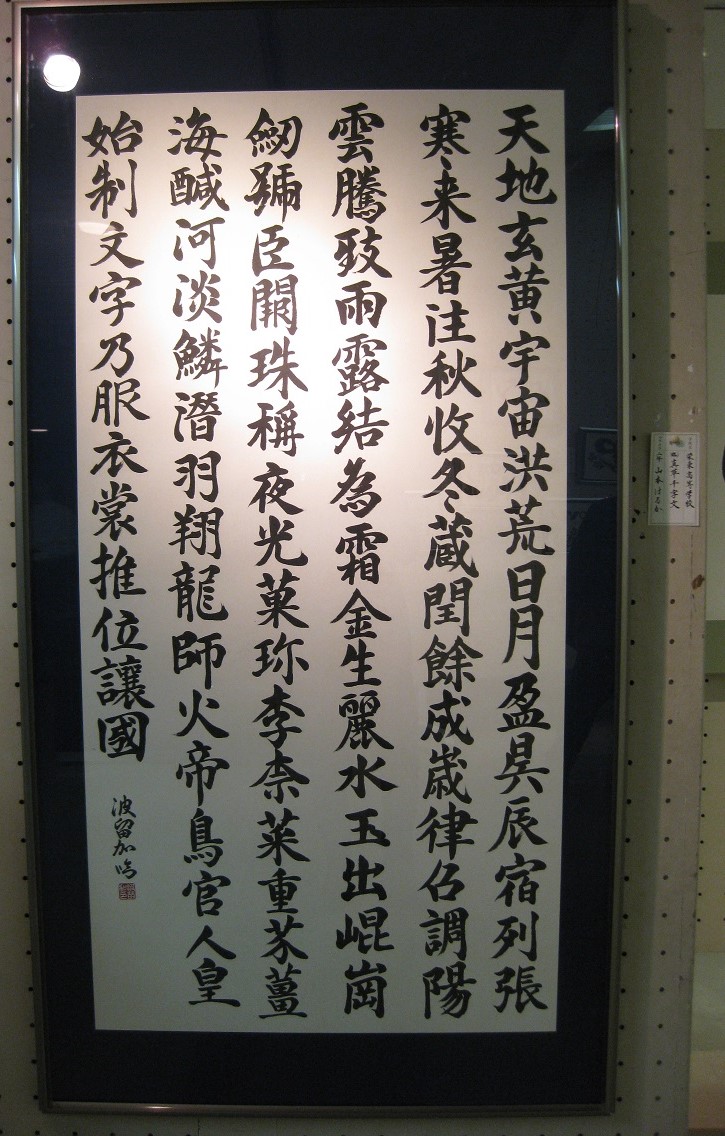 天地玄黄宇宙洪荒日月盈昃辰宿列張
寒来暑往秋收冬蔵閏餘成歳律召調陽
雲騰致雨露結為霜金生麗水玉出崐崗
劒號臣闕珠稱夜光菓珎李柰菜重芥薑
海醎河淡鱗潜羽翔龍師火帝鳥官人皇
始制文字乃服衣裳推位讓國
波留加臨
栄東高等学校
真草千字文
山本はるか